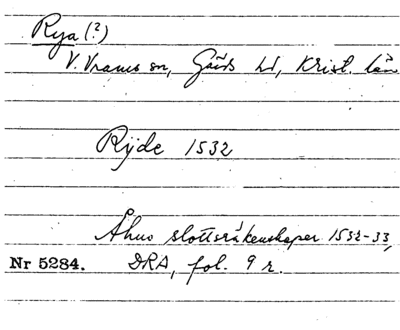 Rya (?)
V. Vrams sn, Gärds hd, Krist. län
Rÿde 1532
Åhus slottsräkenskaper 1532-33,
Nr 5284. DRA, fol. 9 r.